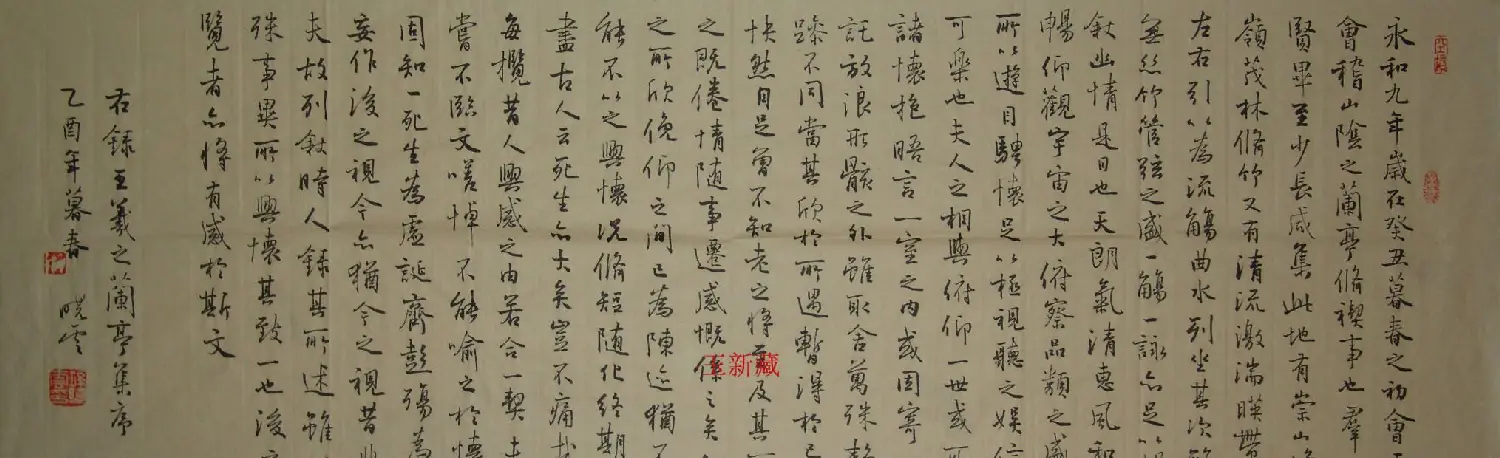 永和九年歲在癸丑暮春之初會
會稽山陰之蘭亭脩禊事也羣
賢畢至少長咸集此地有崇山
嶺茂林脩竹又有清流激湍暎帶
左右引以為流觴曲水列坐其次
無絲竹管弦之盛一觴一詠亦足以
敘幽情是日也天朗氣清惠風和
暢仰觀宇宙之大俯察品類之盛
所以遊目騁懷足以極視聽之娛信
可樂也夫人之相與俯仰一世或
諸懷抱晤言一室之內或因寄
託放浪形骸之外雖取舍萬殊
躁不同當其欣於所遇暫得於己
快然自足曾不知老之將至及其
之既倦情随事遷感慨係之矣
之所欣俛仰之間已為陳迹猶不
能不以之興懷況脩短随化終期
盡古人云死生亦大矣豈不痛哉
每攬昔人興感之由若合一契未
嘗不臨文嗟悼不能喻之於懷
固知一死生為虛誕齊彭殤為
妄作後之視今亦猶今之視昔
夫故列敘時人錄其所述雖
殊事異所以興懷其致一也後
覽者亦將有感於斯文
右録王羲之蘭亭集序
乙酉年暮春 曉雲
王新藏